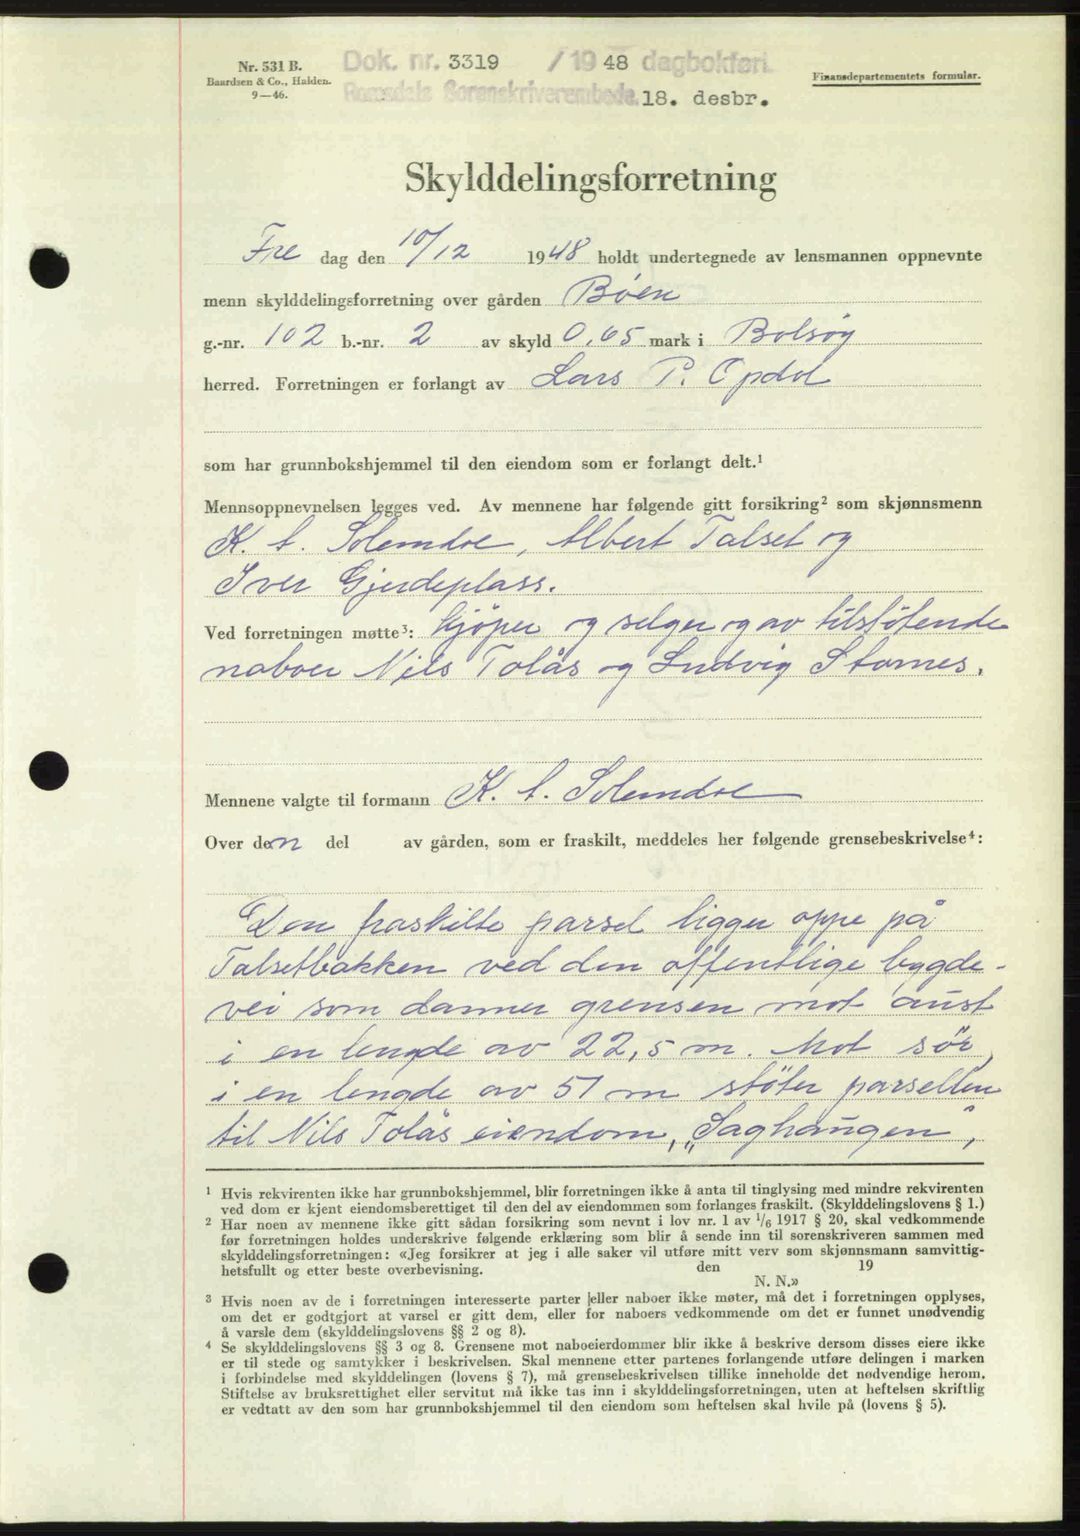 Nr. 531 B.
Baardsen & Co., Halden.
9—46.
Dok. nr. 3319 / 1948 dagbokført.
Romsdals Sorenskriverembede 18. desbr.
Finansdepartementets formular.
Skylddelingsforretning
Fre dag den 10/12 1948 holdt undertegnede av lensmannen oppnevnte
menn skylddelingsforretning over gården Bøen
g.-nr. 102 b.-nr. 2 av skyld 0,65 mark i Bolsøy
herred. Forretningen er forlangt av Lars P. Opdøl
som har grunnbokshjemmel til den eiendom som er forlangt delt.¹
Mennsoppnevnelsen legges ved. Av mennene har følgende gitt forsikring² som skjønnsmenn
K. A. Solemdøl, Albert Talset og
Iver Gjerdeplass.
Ved forretningen møtte³: Kjöper og selger og av tilstötende
naboer Nils Tolås og Ludvig Stornes.
Mennene valgte til formann K. A. Solemdøl
Over den del av gården, som er fraskilt, meddeles her følgende grensebeskrivelse⁴:
Den fraskilte parsel ligger oppe på
Talsetbakken ved den offentlige bygde-
vei som danner grensen mot aust
i en lengde av 22,5 m. Mot sör,
i en lengde av 51 m støter parsellen
til Nils Tolås eiendom, „Saghaugen“,
¹ Hvis rekvirenten ikke har grunnbokshjemmel, blir forretningen ikke å anta til tinglysing med mindre rekvirenten
ved dom er kjent eiendomsberettiget til den del av eiendommen som forlanges fraskilt. (Skylddelingslovens § 1.)
² Har noen av mennene ikke gitt sådan forsikring som nevnt i lov nr. 1 av 1/6 1917 § 20, skal vedkommende
før forretningen holdes underskrive følgende erklæring som blir å sende inn til sorenskriveren sammen med
skylddelingsforretningen: «Jeg forsikrer at jeg i alle saker vil utføre mitt verv som skjønnsmann samvittig-
hetsfullt og etter beste overbevisning. den 19
N. N.»
³ Hvis noen av de i forretningen interesserte parter eller naboer ikke møter, må det i forretningen opplyses,
om det er godtgjort at varsel er gitt dem, eller for naboers vedkommende om det er funnet unødvendig
å varsle dem (skylddelingslovens §§ 2 og 8).
⁴ Se skylddelingslovens §§ 3 og 8. Grensene mot naboeierdommer blir ikke å beskrive dersom disses eiere ikke
er til stede og samtykker i beskrivelsen. Skal mennene etter partenes forlangende utføre delingen i marken
i forbindelse med skylddelingen (lovens § 7), må grensebeskrivelsen tillike inneholde det nødvendige herom.
Stiftelse av bruksrettighet eller servitut må ikke tas inn i skylddelingsforretningen, uten at heftelsen skriftlig
er vedtatt av den som har grunnbokshjemmel til den eiendom som heftelsen skal hvile på (lovens § 5).